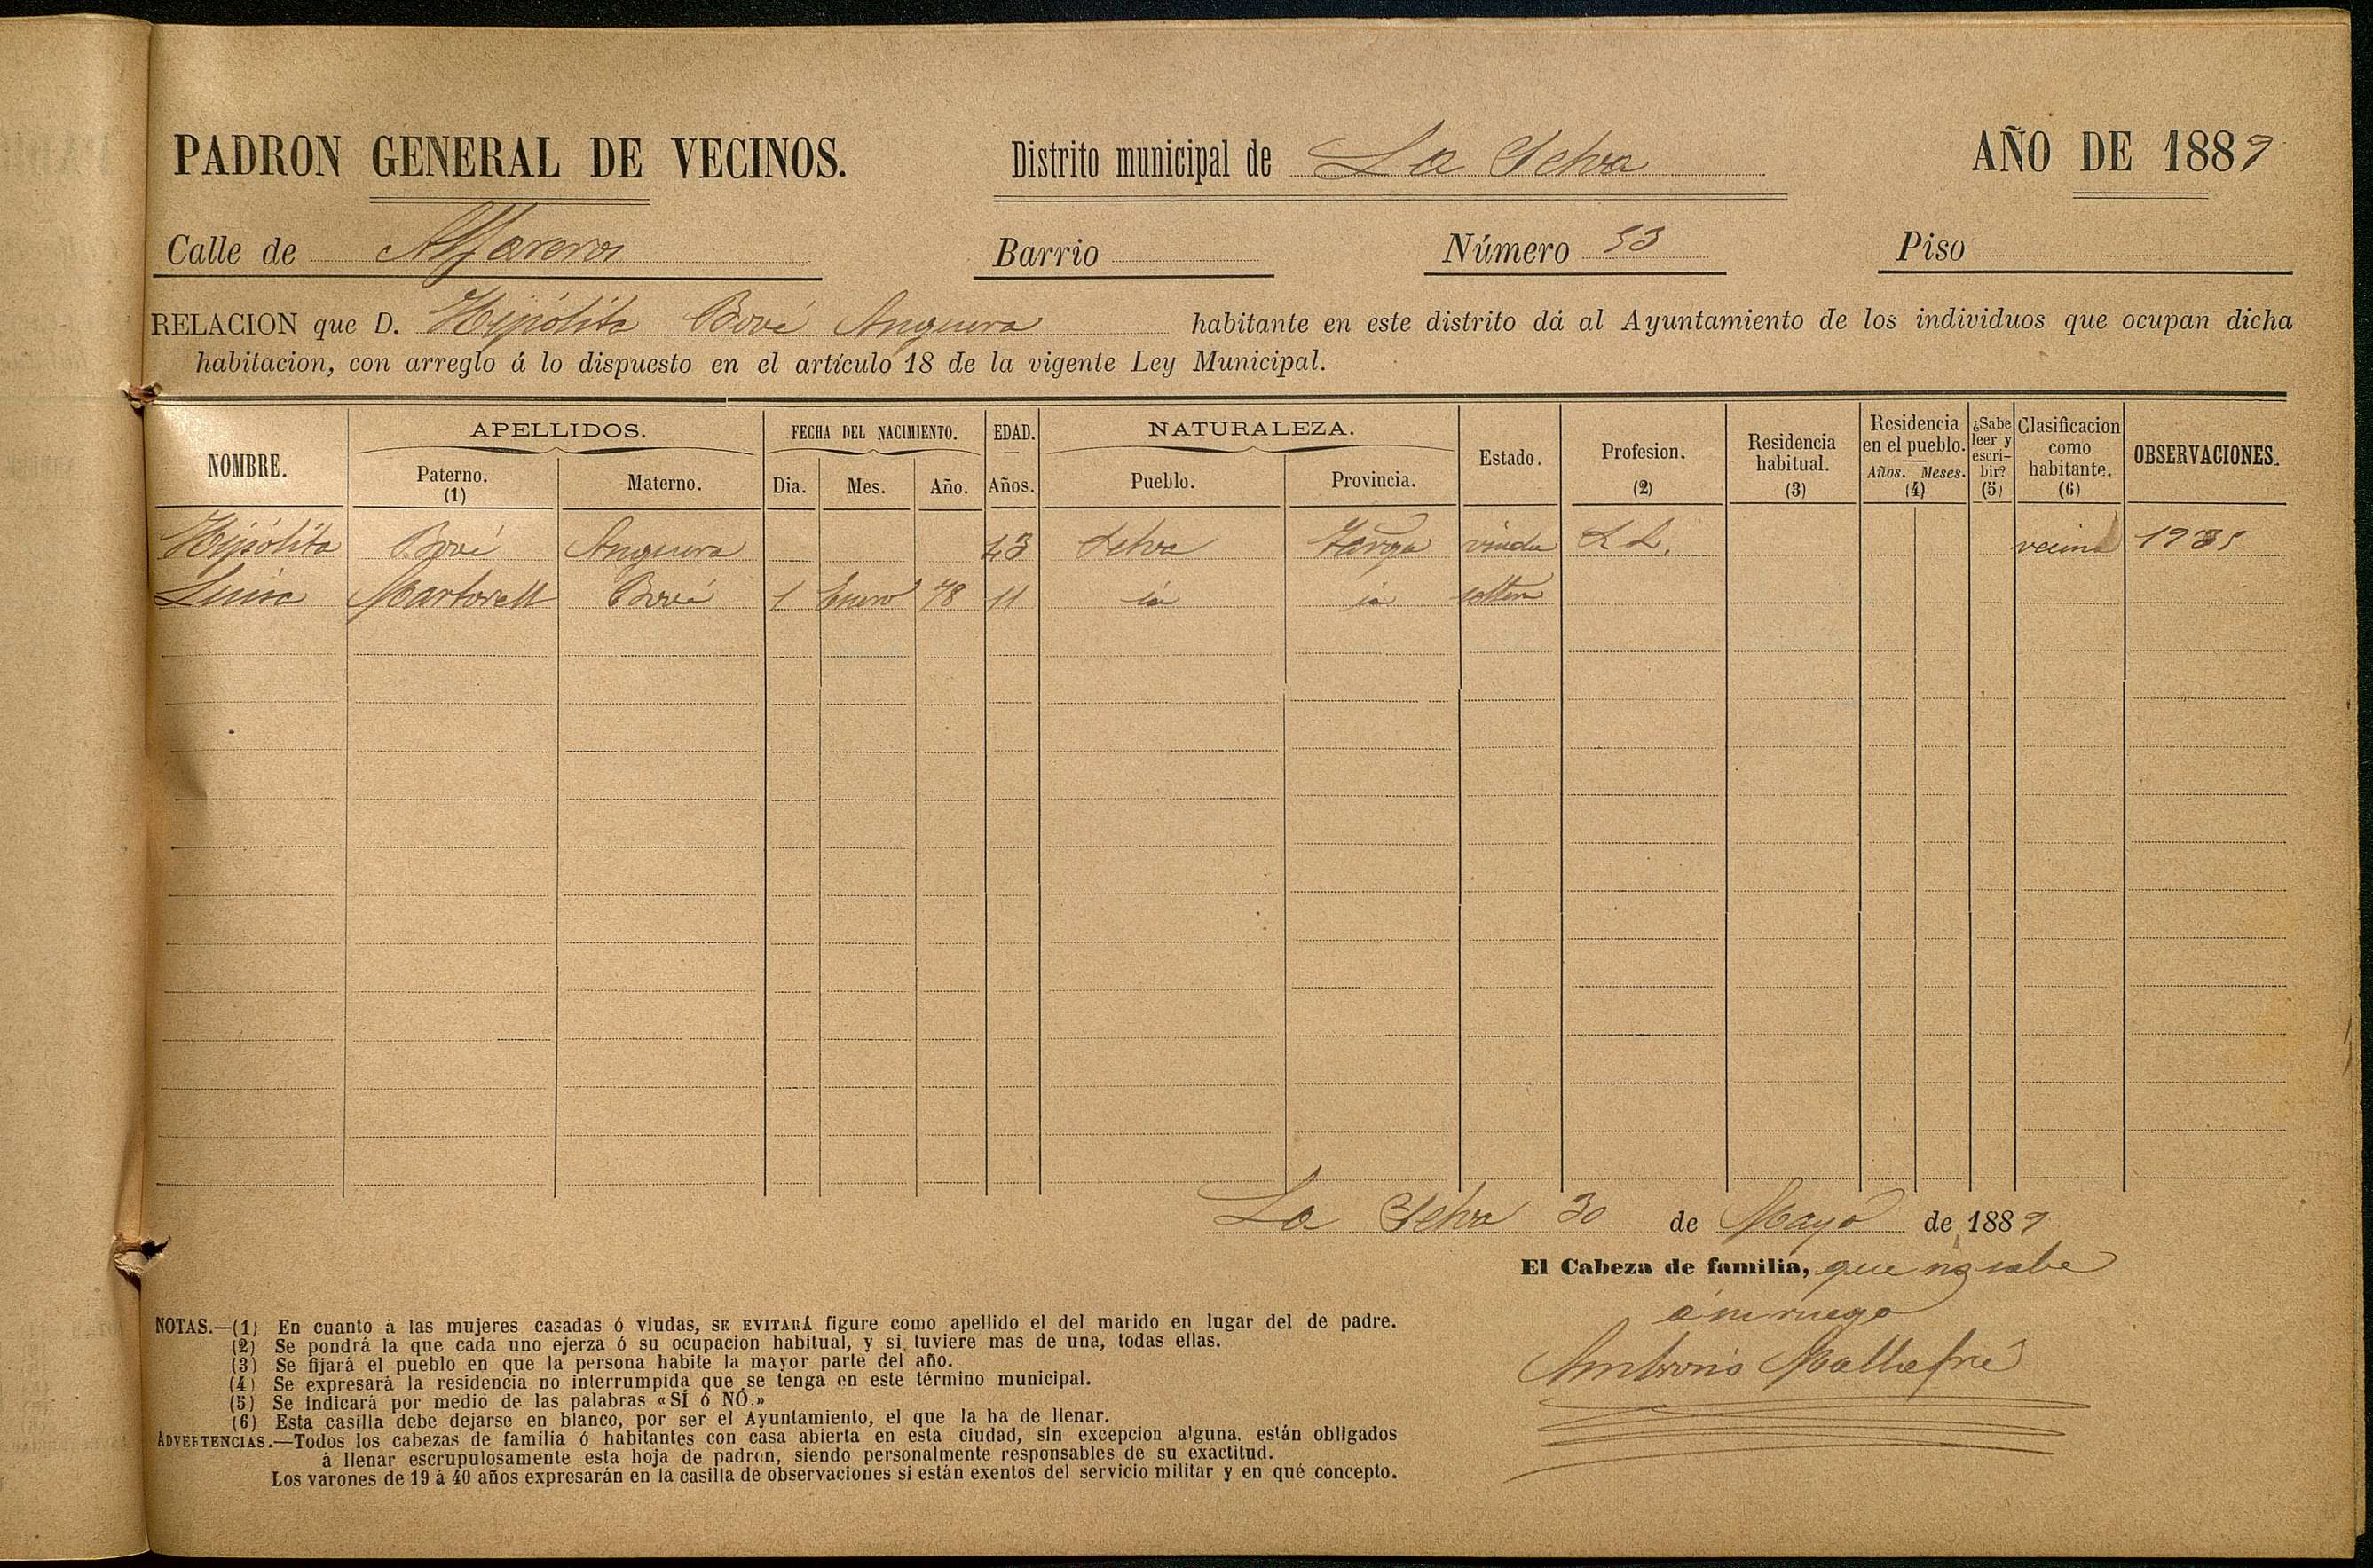 PADRON GENERAL DE VECINOS. Distrito municipal de La Selva AÑO DE 1889
Calle de Alfareros Barrio Número 53 Piso
RELACION que D. Hipólita Bové Anguera habitante en este distrito dá al Ayuntamiento de los individuos que ocupan dicha
habitacion, con arreglo á lo dispuesto en el artículo 18 de la vigente Ley Municipal.
NOMBRE. APELLIDOS. Paterno. (1) Materno. FECHA DEL NACIMIENTO. Dia. Mes. Año. EDAD. Años. NATURALEZA. Pueblo. Provincia. Estado. Profesion. (2) Residencia habitual. (3) Residencia en el pueblo. Años. Meses. (4) ¿Sabe leer y escri- bir? (5) Clasificacion como habitante. (6) OBSERVACIONES.
Hipólita Bové Anguera 43 Selva Tarrga viuda S. L. vecina
Luisa Martorell Bové 1 Enero 78 11 id id soltera
La Selva 30 de Mayo de 1889
El Cabeza de familia, que no sabe
á mi ruego
Ambrosio Mallafré
NOTAS.—(1) En cuanto á las mujeres casadas ó viudas, SE EVITARÁ figure como apellido el del marido en lugar del de padre.
(2) Se pondrá la que cada uno ejerza ó su ocupacion habitual, y si tuviere mas de una, todas ellas.
(3) Se fijará el pueblo en que la persona habite la mayor parte del año.
(4) Se expresará la residencia no interrumpida que se tenga en este término municipal.
(5) Se indicará por medio de las palabras «SÍ ó NÓ.»
(6) Esta casilla debe dejarse en blanco, por ser el Ayuntamiento, el que la ha de llenar.
ADVERTENCIAS.—Todos los cabezas de familia ó habitantes con casa abierta en esta ciudad, sin excepcion alguna, están obligados
á llenar escrupulosamente esta hoja de padron, siendo personalmente responsables de su exactitud.
Los varones de 19 á 40 años expresarán en la casilla de observaciones si están exentos del servicio militar y en qué concepto.